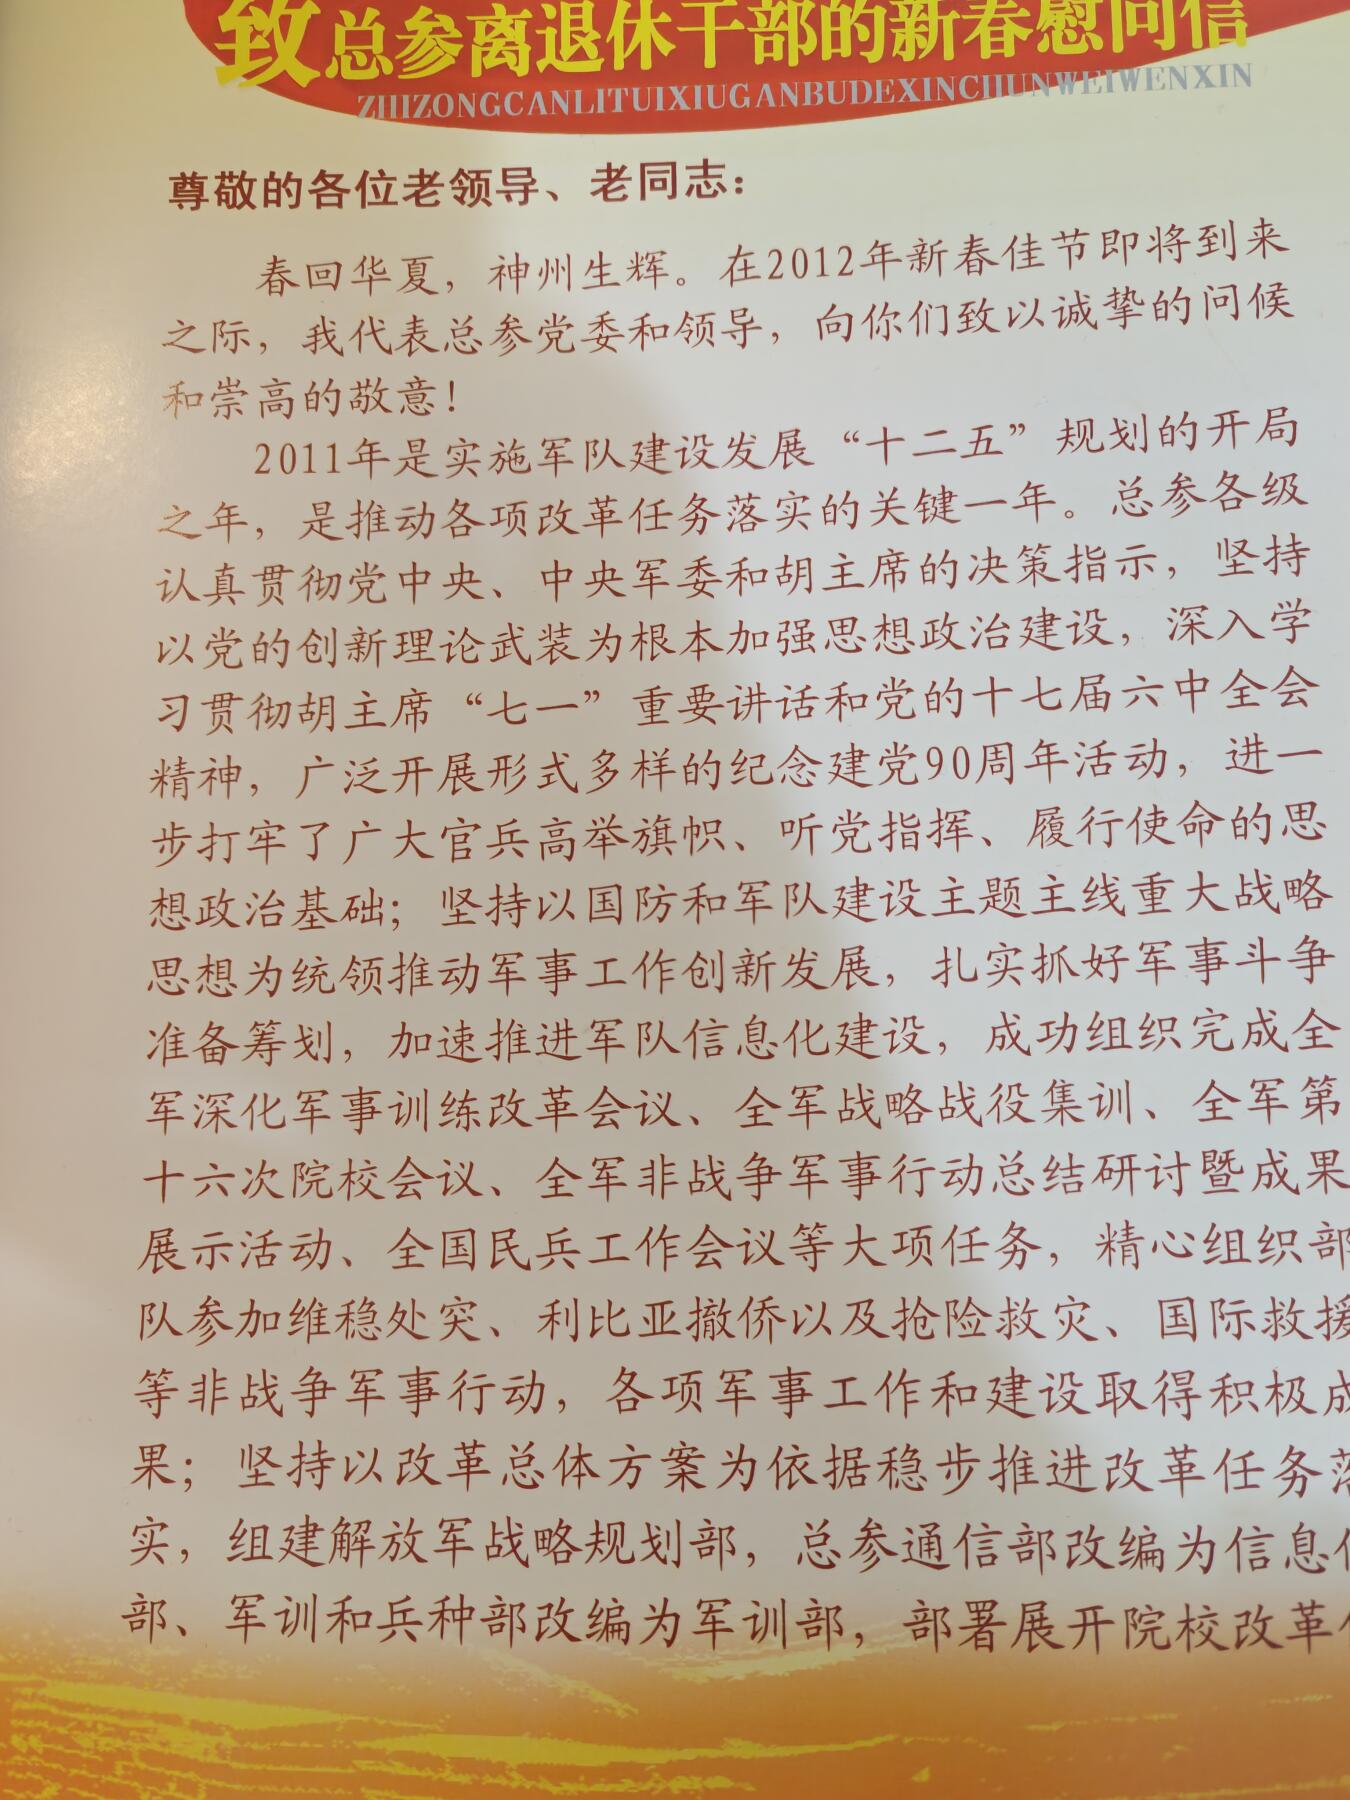 致总参离退休干部的新春慰问信
ZHIZONGCANLITUIXIUGANBUDEXINCHUNWEIWENXIN
尊敬的各位老领导、老同志：
春回华夏，神州生辉。在2012年新春佳节即将到来
之际，我代表总参党委和领导，向你们致以诚挚的问候
和崇高的敬意！
2011年是实施军队建设发展“十二五”规划的开局
之年，是推动各项改革任务落实的关键一年。总参各级
认真贯彻党中央、中央军委和胡主席的决策指示，坚持
以党的创新理论武装为根本加强思想政治建设，深入学
习贯彻胡主席“七一”重要讲话和党的十七届六中全会
精神，广泛开展形式多样的纪念建党90周年活动，进一
步打牢了广大官兵高举旗帜、听党指挥、履行使命的思
想政治基础；坚持以国防和军队建设主题主线重大战略
思想为统领推动军事工作创新发展，扎实抓好军事斗争
准备筹划，加速推进军队信息化建设，成功组织完成全
军深化军事训练改革会议、全军战略战役集训、全军第
十六次院校会议、全军非战争军事行动总结研讨暨成果
展示活动、全国民兵工作会议等大项任务，精心组织部
队参加维稳处突、利比亚撤侨以及抢险救灾、国际救援
等非战争军事行动，各项军事工作和建设取得积极成
果；坚持以改革总体方案为依据稳步推进改革任务落
实，组建解放军战略规划部，总参通信部改编为信息
部、军训和兵种部改编为军训部，部署展开院校改革